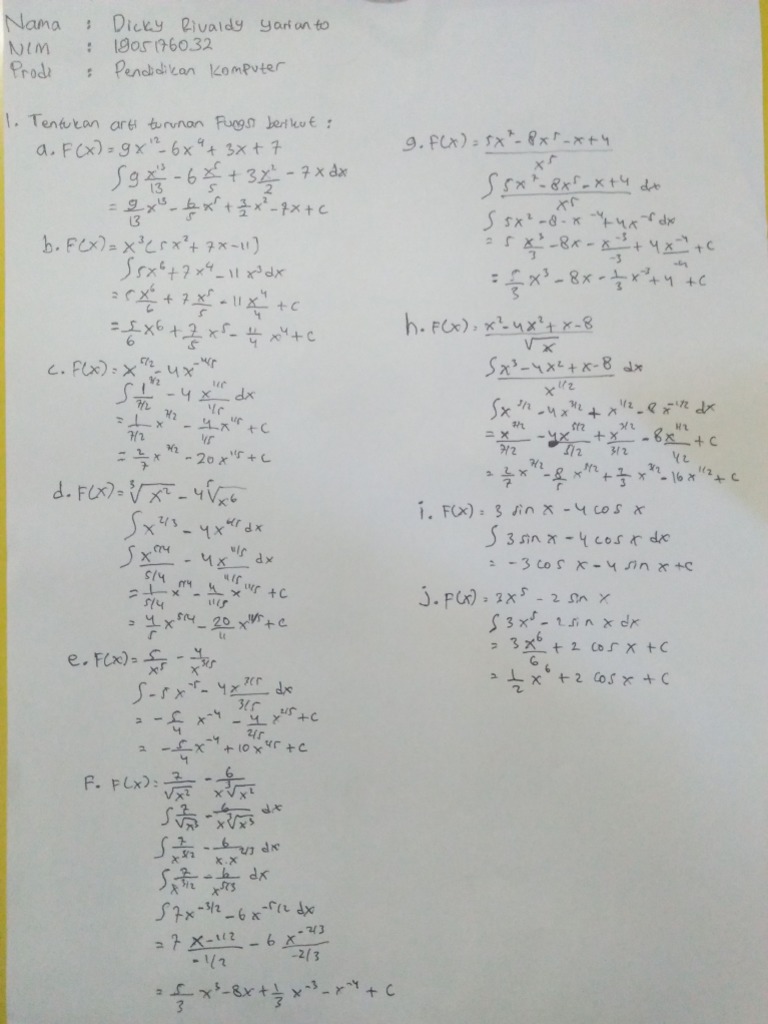 Nama : Dicky Rivaldy Yarianto
NIM : 1905176032
Prodi : Pendidikan Komputer
1. Tentukan arti turunan Fungsi berikut :
a. F(x) = 9x¹² - 6x⁴ + 3x + 7
∫ 9 x¹³/13 - 6 x⁵/5 + 3 x²/2 - 7x dx
= 9/13 x¹³ - 6/5 x⁵ + 3/2 x² - 7x + C
b. F(x) = x³ (5x² + 7x - 11)
∫ 5x⁶ + 7x⁴ - 11 x³ dx
= 5 x⁶/6 + 7 x⁵/5 - 11 x⁴/4 + C
= 5/6 x⁶ + 7/5 x⁵ - 11/4 x⁴ + C
c. F(x) = x^5/2 - 4x^-4/5
∫ 1^7/2/7/2 - 4 x^1/5/1/5 dx
= 1/7/2 x^7/2 - 4/1/5 x^1/5 + C
= 2/7 x^7/2 - 20 x^1/5 + C
d. F(x) = ³√x² - 4 ⁵√x⁶
∫ x^2/3 - 4x^6/5 dx
∫ x^5/4/5/4 - 4x^11/5/11/5 dx
= 1/5/4 x^5/4 - 4/11/5 x^11/5 + C
= 4/5 x^5/4 - 20/11 x^11/5 + C
e. F(x) = 5/x⁵ - 4/x^3/5
∫ -5 x^-5 - 4x^3/5/3/5 dx
= -5/4 x^-4 - 4/2/5 x^2/5 + C
= -5/4 x^-4 + 10 x^2/5 + C
F. F(x) = 7/√x² - 6/x ³√x²
∫ 7/√x³ - 6/x ³√x³ dx
∫ 7/x^3/2 - 6/x.x^2/3 dx
∫ 7/x^3/2 - 6/x^5/3 dx
∫ 7x^-3/2 - 6x^-5/2 dx
= 7 x^-1/2/-1/2 - 6 x^-2/3/-2/3
= 5/3 x³ - 8x + 1/3 x^-3 - x^-4 + C
g. F(x) = 5x⁷ - 8x⁵ - x + 4/x⁵
∫ 5x⁷ - 8x⁵ - x + 4/x⁵ dx
∫ 5x² - 8 - x^-4 + 4x^-5 dx
= 5 x³/3 - 8x - x^-3/-3 + 4 x^-4/-4 + C
= 5/3 x³ - 8x - 1/3 x^-3 + 4 + C
h. F(x) = x² - 4x² + x - 8/√x
∫ x³ - 4x² + x - 8/x^1/2 dx
∫ x^5/2 - 4x^3/2 + x^1/2 - 8 x^-1/2 dx
= x^7/2/7/2 - 4x^5/2/5/2 + x^3/2/3/2 - 8x^1/2/1/2 + C
= 2/7 x^7/2 - 8/5 x^5/2 + 2/3 x^3/2 - 16 x^1/2 + C
i. F(x) = 3 sin x - 4 cos x
∫ 3 sin x - 4 cos x dx
= -3 cos x - 4 sin x + C
j. F(x) = 3x⁵ - 2 sin x
∫ 3x⁵ - 2 sin x dx
= 3 x⁶/6 + 2 cos x + C
= 1/2 x⁶ + 2 cos x + C